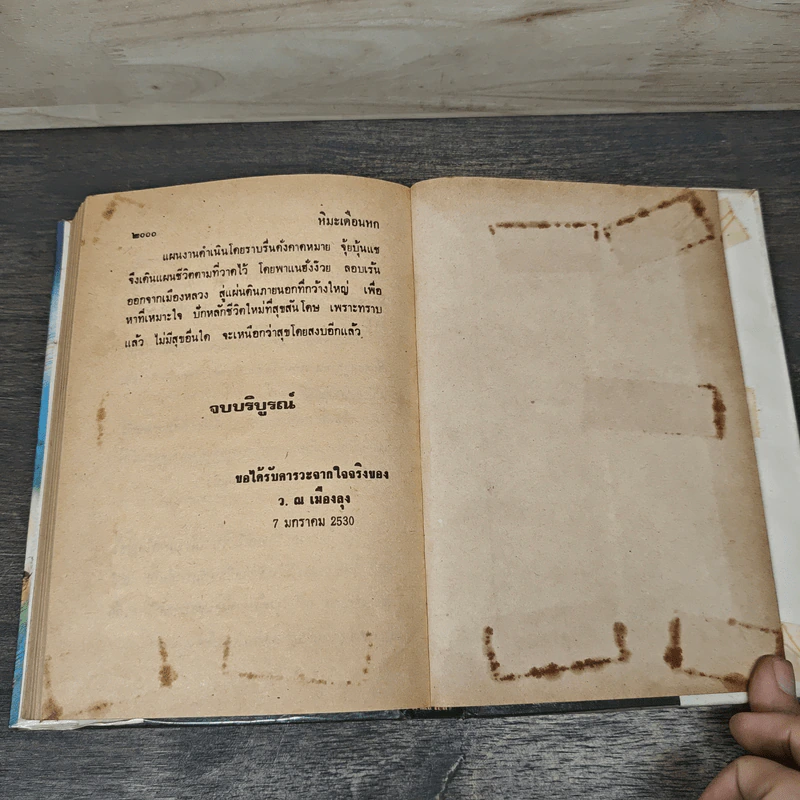 ๒๐๐๐
หิมะเดือนหก
แผนงานดำเนินโดยราบรื่นดั่งคาดหมาย จุ้ยบุ้นแช
จึงเดินแผนชีวิตตามที่วาดไว้ โดยพาแนฮั่งง้วย ลอบเร้น
ออกจากเมืองหลวง สู่แผ่นดินภายนอกที่กว้างใหญ่ เพื่อ
หาที่เหมาะใจ ปักหลักชีวิตใหม่ที่สุขสันโดษ เพราะทราบ
แล้ว ไม่มีสุขอื่นใด จะเหนือกว่าสุขโดยสงบอีกแล้ว.
จบบริบูรณ์
ขอได้รับคารวะจากใจจริงของ
ว. ณ เมืองลุง
7 มกราคม 2530